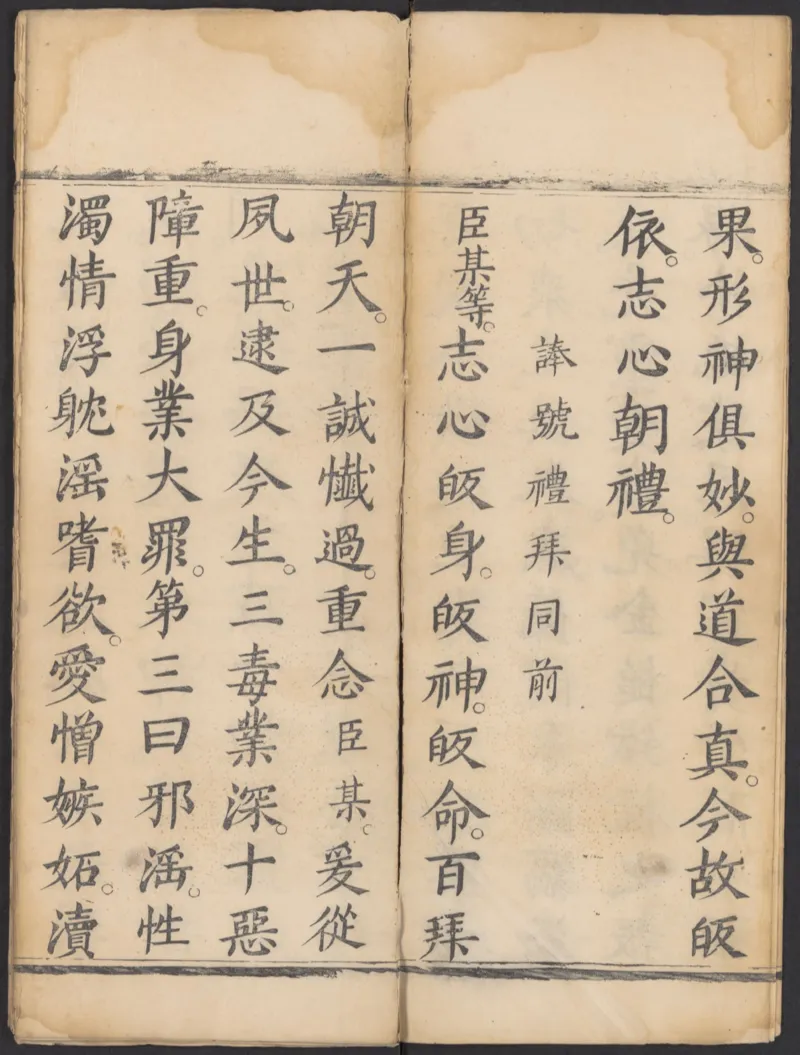 果。形神俱妙。與道合真。今故皈
依。志心朝禮。
諱號禮拜同前
臣某等。志心皈身。皈神。皈命。百拜
朝天。一誠懺過。重念臣某。爰從
夙世。逮及今生。三毒業深。十惡
障重。身業大罪。第三曰邪滛。性
濁情浮躭滛嗜欲。愛憎嫉妬。瀆